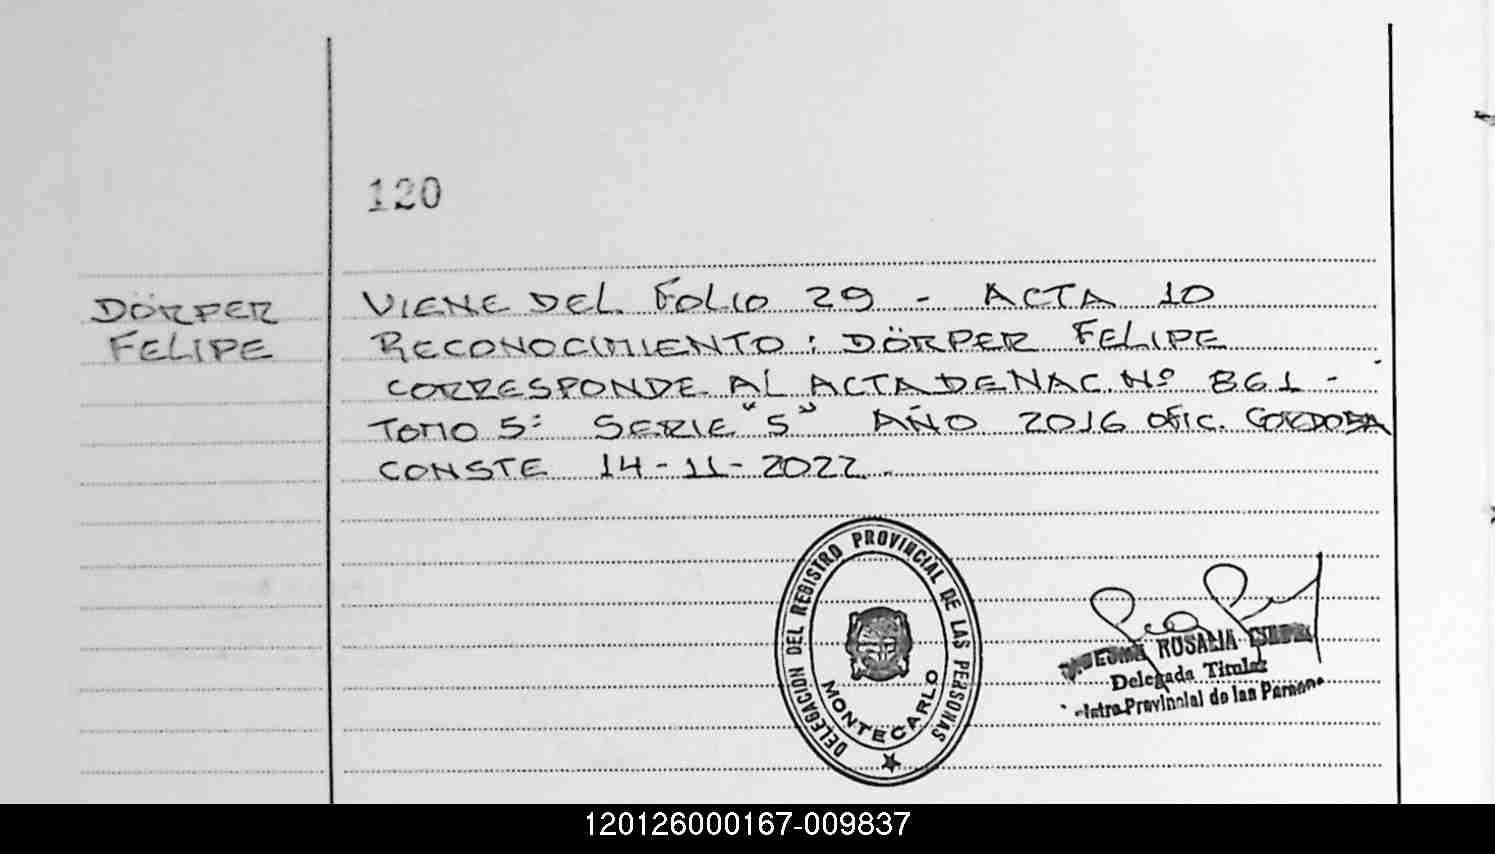 120
DÖRPER
FELIPE
VIENE DEL FOLIO 29 - ACTA 10
RECONOCIMIENTO : DÖRPER FELIPE
CORRESPONDE AL ACTA DE NAC. Nº 861 -
TOMO 5º SERIE "S" AÑO 2016 OFIC. CORDOBA
CONSTE 14-11-2022.-
DELEGACION DEL REGISTRO PROVINCIAL DE LAS PERSONAS
MONTECARLO
ROSALIA
Delegada Titular
Provincial de las
120126000167-009837